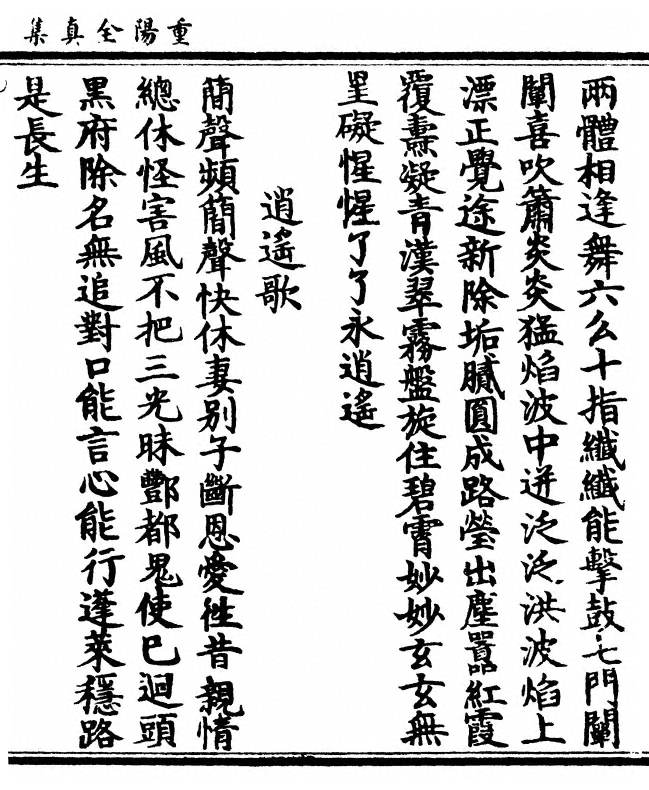 重陽全真集
兩體相逢舞六么十指纖纖能擊鼓七門闡
闡喜吹簫炎炎猛焰波中迸泛泛洪波焰上
漂正覺途新除垢膩圓成路瑩出塵囂紅霞
覆燾凝青漢翠霧盤旋住碧霄妙妙玄玄無
罣礙惺惺了了永逍遙
逍遙歌
簡聲頻簡聲快休妻別子斷恩愛徃昔親情
總休怪害風不把三光昧酆都鬼使巳迴頭
黑府除名無追對口能言心能行蓬萊穩路
是長生